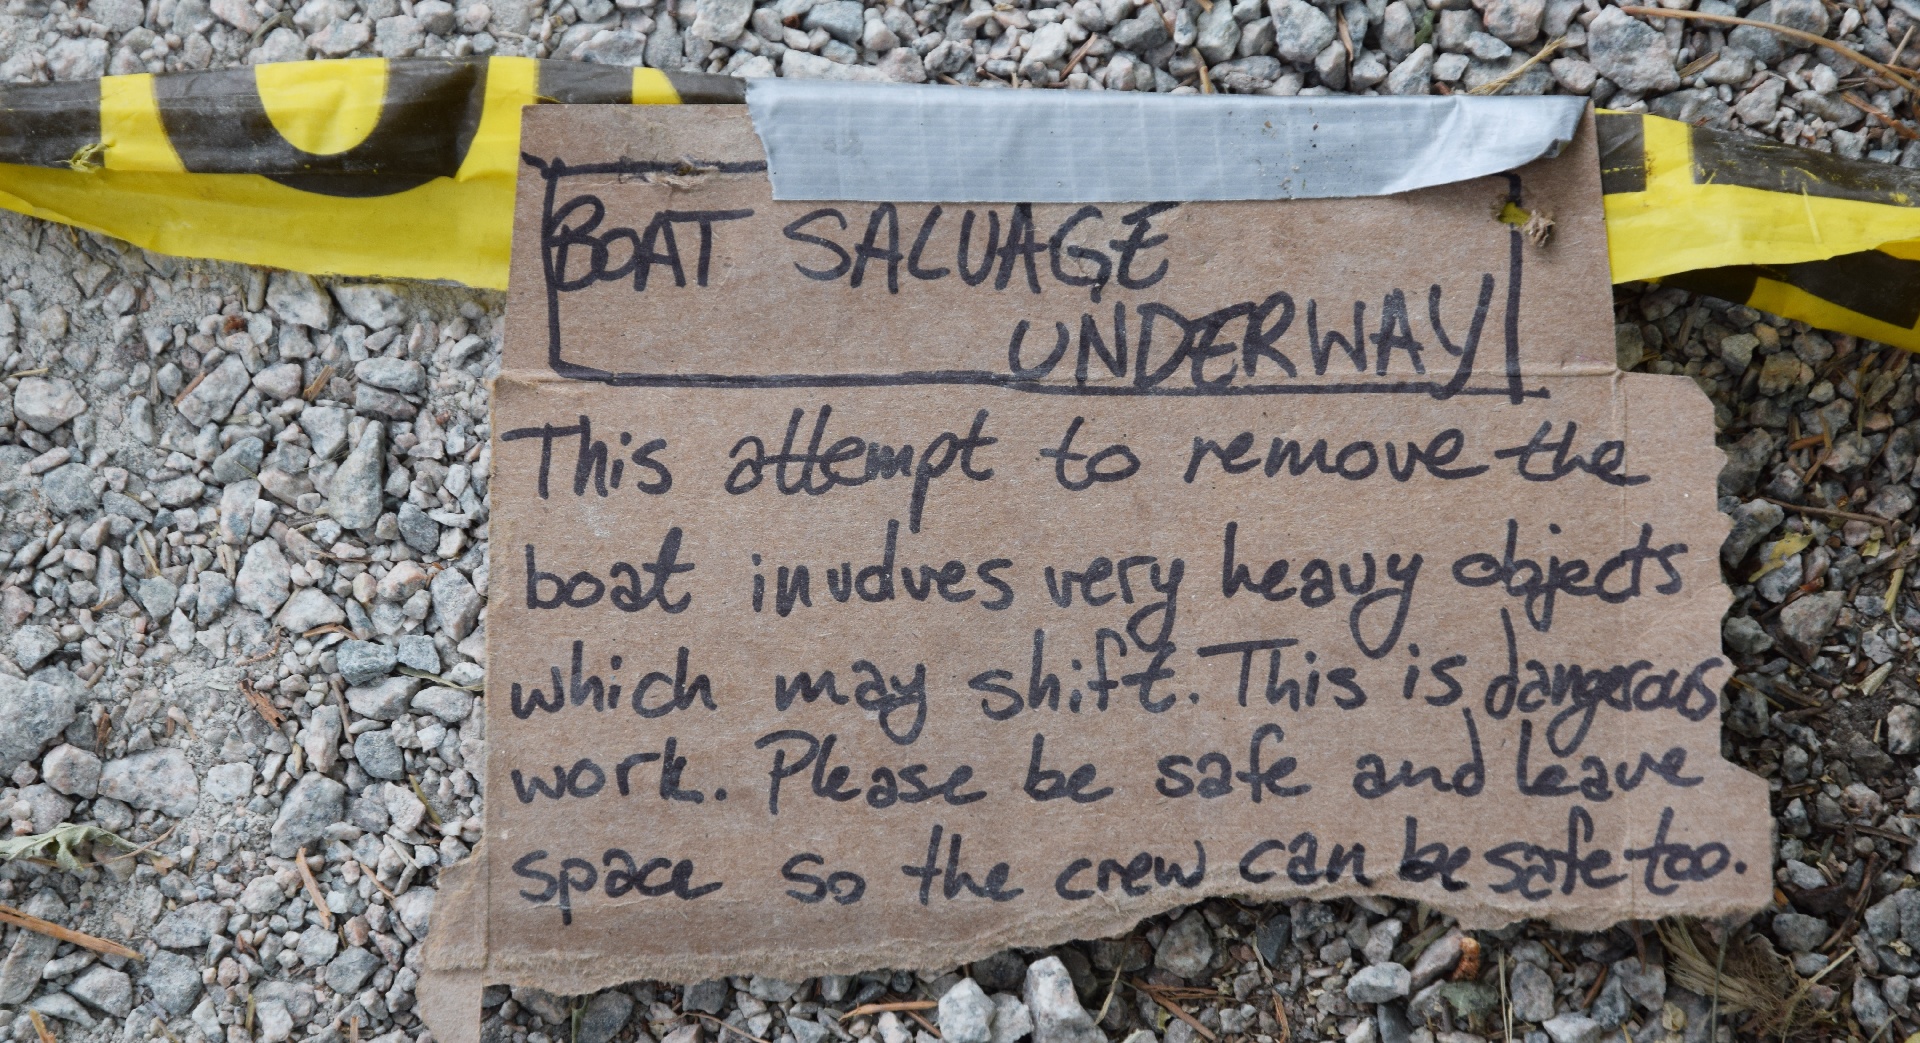 BOAT SALVAGE
UNDERWAY
This attempt to remove the
boat involves very heavy objects
which may shift. This is dangerous
work. Please be safe and leave
space so the crew can be safe too.